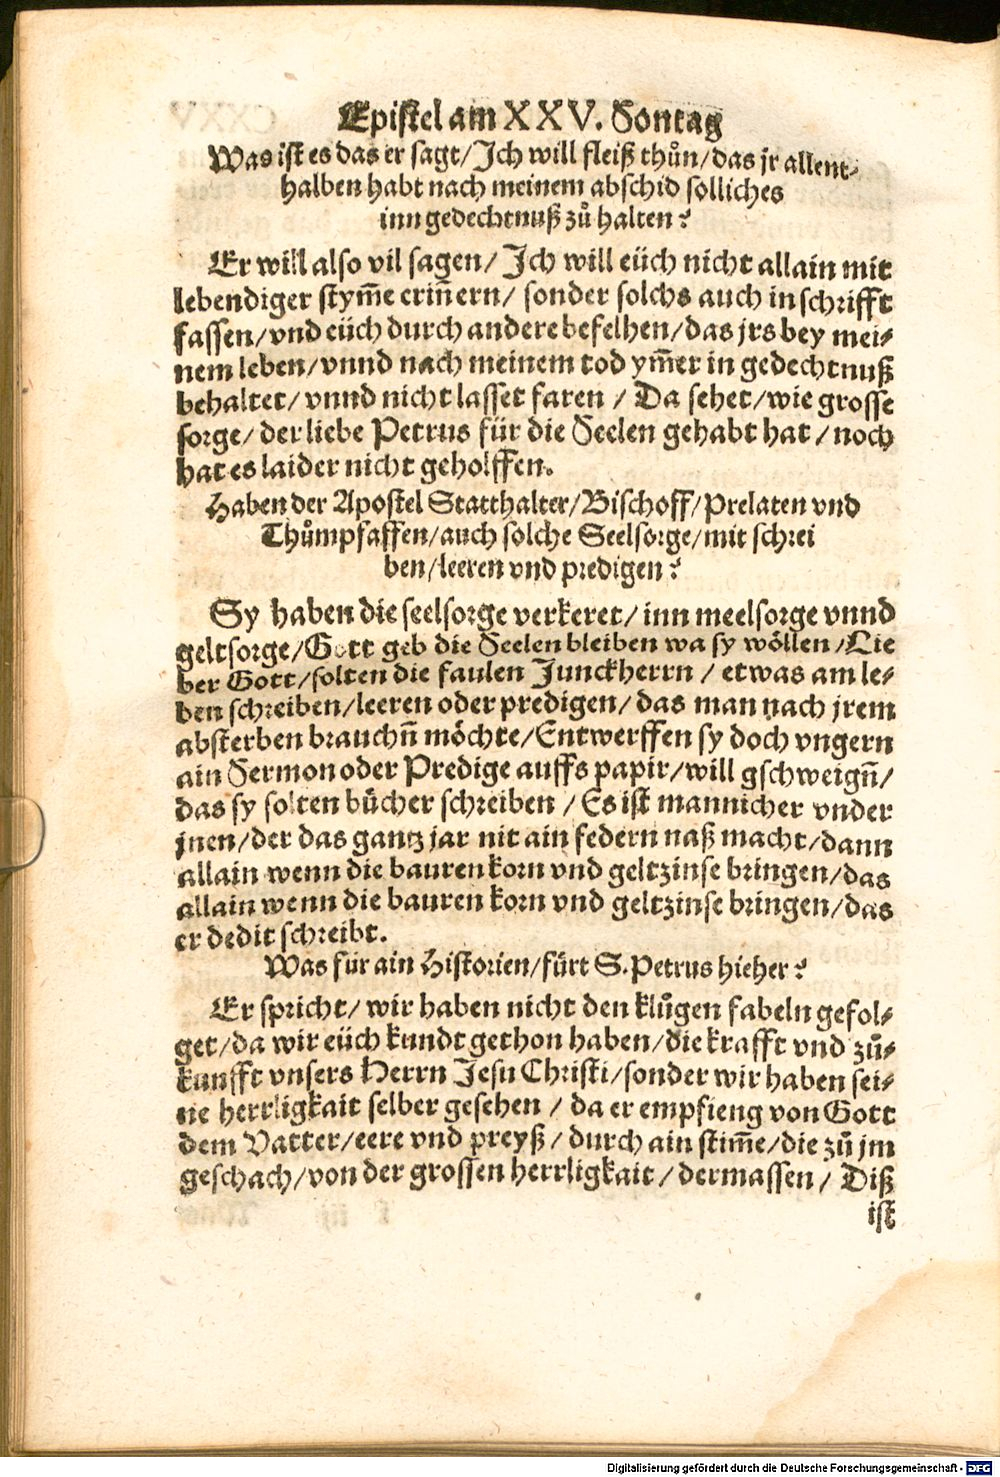 Epistel am XXV. Sontag
Was ist es das er sagt/ Ich will fleiß thůn/ das jr allent-
halben habt nach meinem abschid solliches
inn gedechtnuß zů halten?
Er will also vil sagen/ Ich will eüch nicht allain mit
lebendiger stym̃e erin̄ern/ sonder solchs auch in schrifft
fassen/ vnd eüch durch andere befelhen/ das jrs bey mei-
nem leben/ vnnd nach meinem tod ym̃er in gedechtnuß
behaltet/ vnnd nicht lasset faren / Da sehet/ wie grosse
sorge/ der liebe Petrus für die Seelen gehabt hat / noch
hat es laider nicht geholffen.
Haben der Apostel Statthalter/ Bischoff/ Prelaten vnd
Thůmpfaffen/ auch solche Seelsorge/ mit schrei
ben/ leeren vnd predigen?
Sy haben die seelsorge verkeret/ inn meelsorge vnnd
geltsorge/ Gott geb die Seelen bleiben wa sy wöllen / Lie
ber Gott/ solten die faulen Junckherrn / etwas am le-
ben schreiben/ leeren oder predigen/ das man nach jrem
absterben brauchn̄ möchte/ Entwerffen sy doch vngern
ain Sermon oder Predige auffs papir/ will gschweign̄/
das sy solten bücher schreiben / Es ist mannicher vnder
jnen/ der das gantz jar nit ain federn naß macht/ dann
allain wenn die bauren korn vnd geltzinse bringen/ das
allain wenn die bauren korn vnd geltzinse bringen/ das
er dedit schreibt.
Was für ain Historien/ fürt S. Petrus hieher?
Er spricht/ wir haben nicht den klůgen fabeln gefol-
get/ da wir eüch kundt gethon haben/ die krafft vnd zů-
kunfft vnsers Herrn Jesu Christi/ sonder wir haben sei-
ne herrligkait selber gesehen / da er empfieng von Gott
dem Vatter/ eere vnd preyß / durch ain stim̃e/ die zů jm
geschach/ von der grossen herrligkait / dermassen / Diß
ist
Digitalisierung gefördert durch die Deutsche Forschungsgemeinschaft - DFG